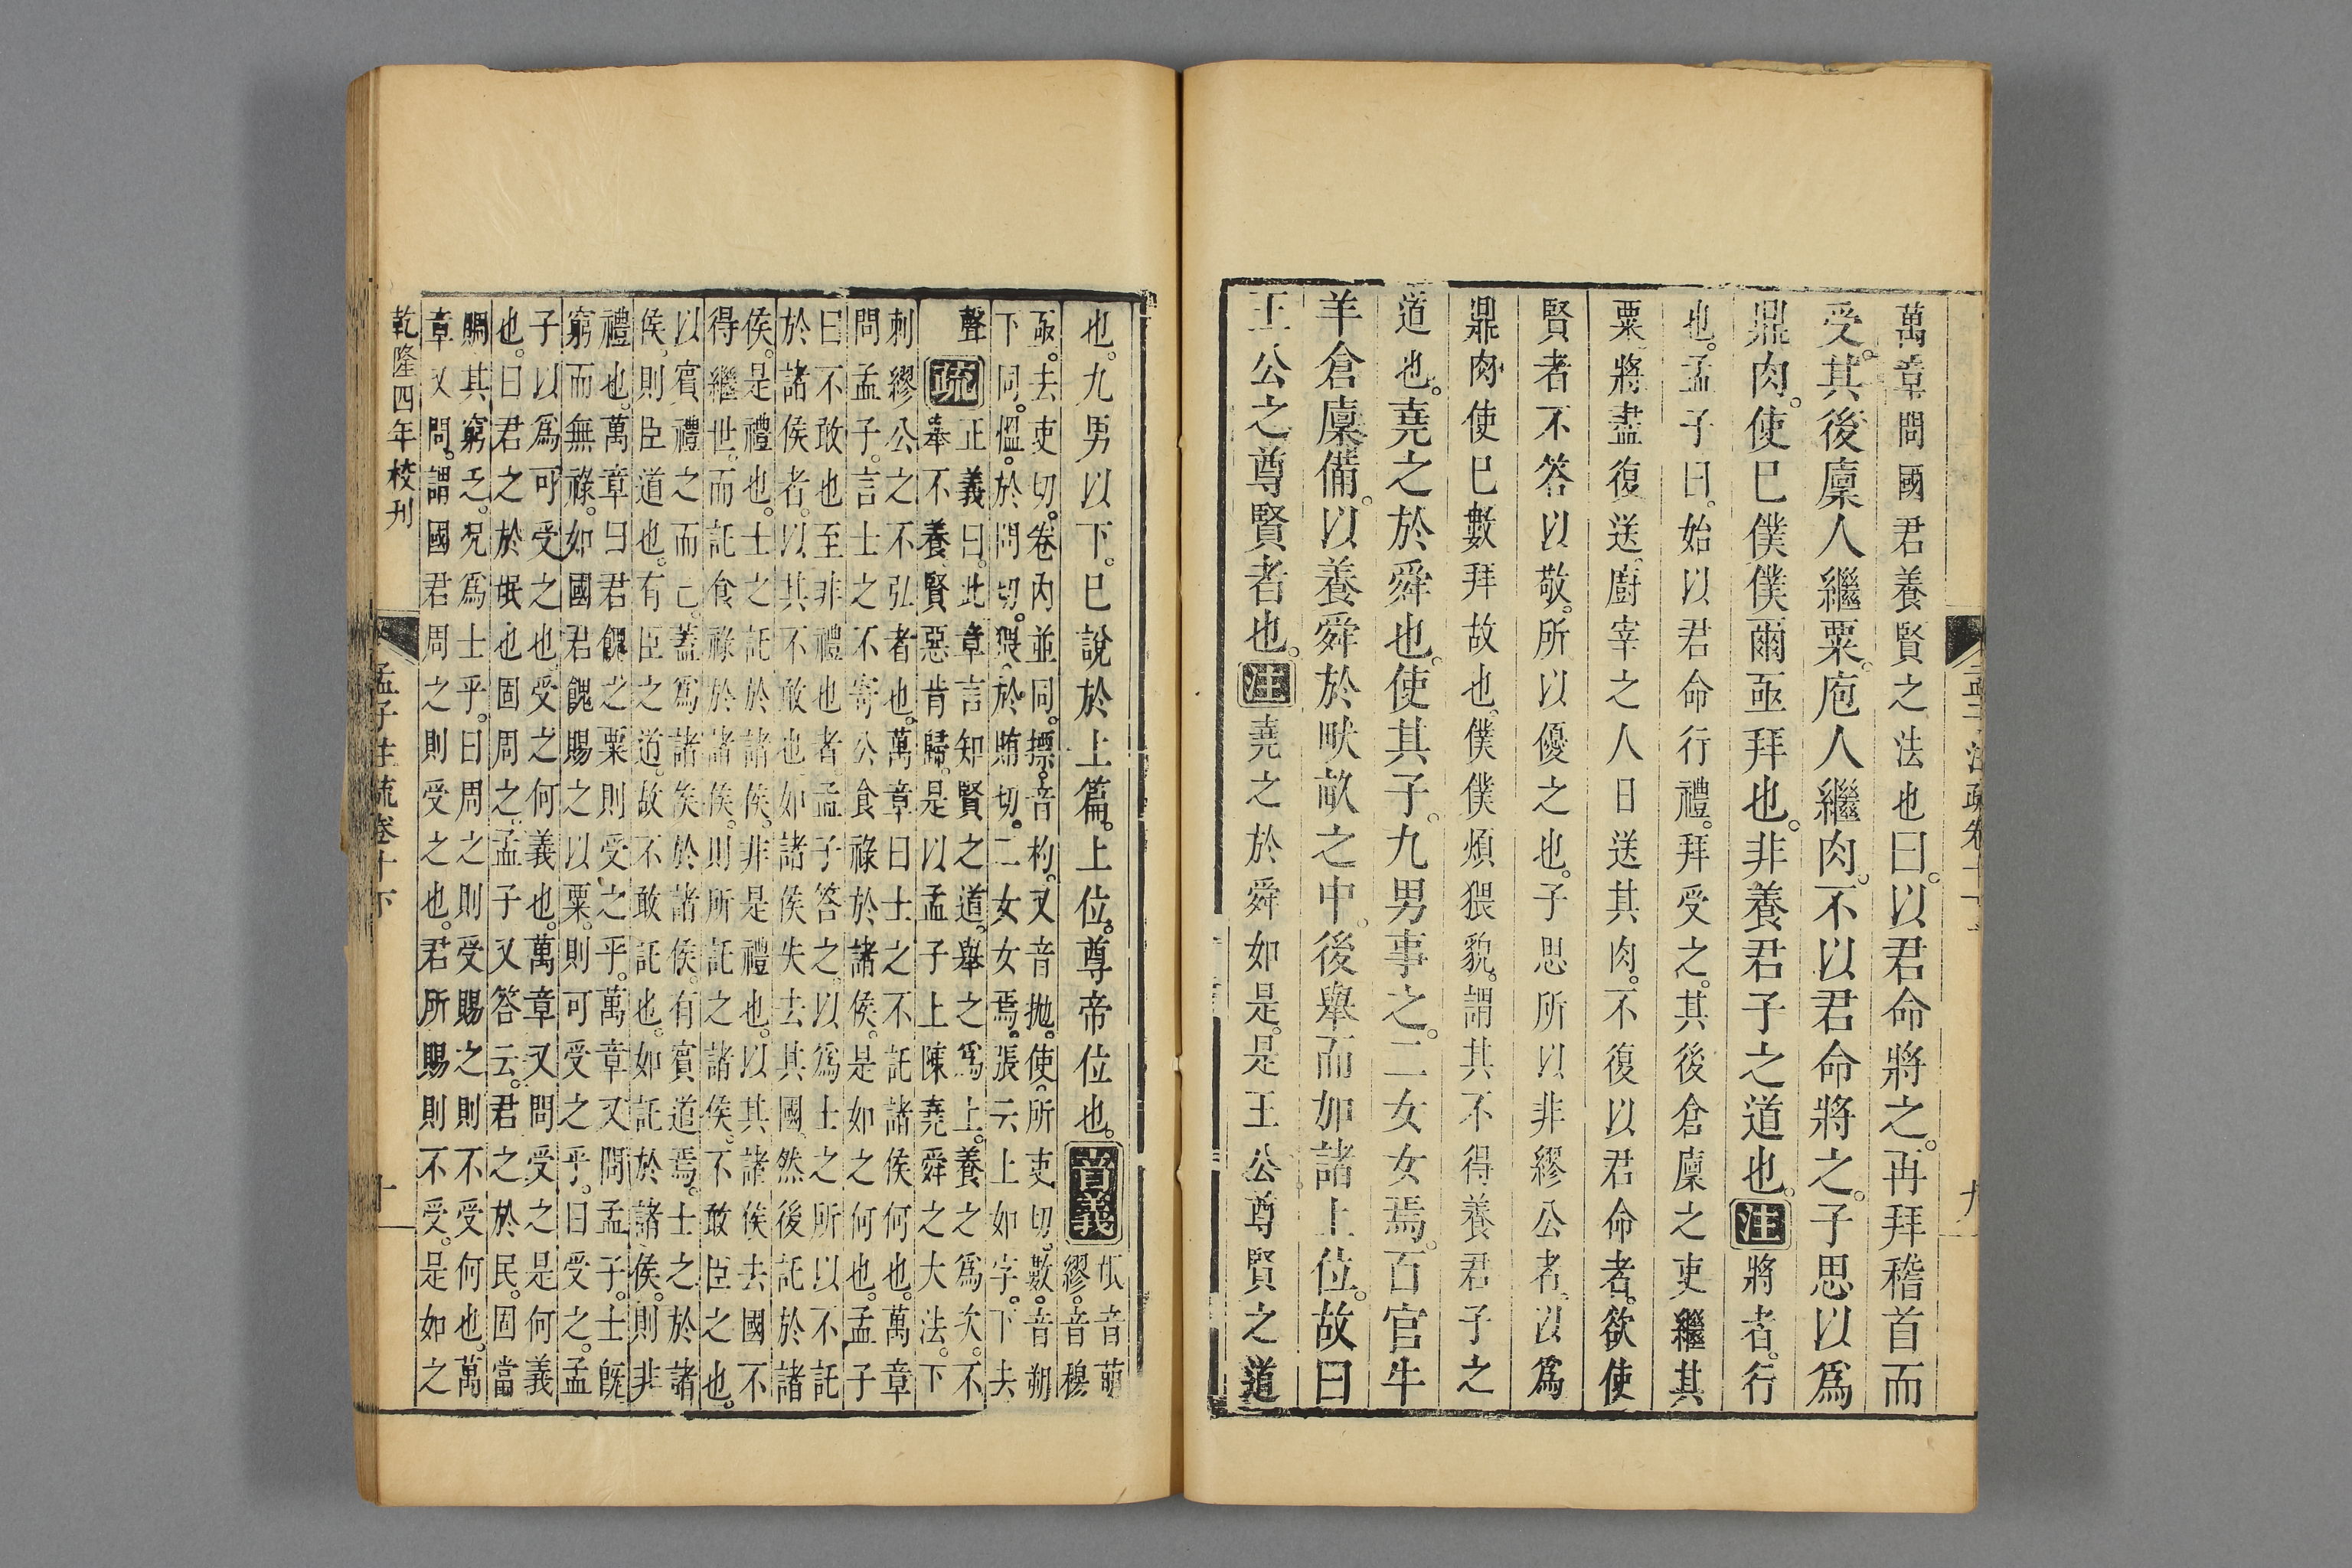 萬章問國君養賢之法也曰。以君命將之。再拜稽首而
受。其後廩人繼粟。庖人繼肉。不以君命將之。子思以爲
鼎肉。使已僕僕爾亟拜也。非養君子之道也。注將者。行
也。孟子曰。始以君命行禮。拜受之。其後倉廩之吏繼其
粟將盡復送。廚宰之人日送其肉。不復以君命者。欲使
賢者不答以敬。所以優之也。子思所以非繆公者。以爲
鼎肉使已數拜故也。僕僕煩猥貌。謂其不得養君子之
道也。堯之於舜也。使其子。九男事之。二女女焉。百官牛
羊倉廩備。以養舜於畎畝之中。後舉而加諸上位。故曰
王公之尊賢者也。注堯之於舜如是。是王公尊賢之道
九
也。九男以下。已說於上篇。上位。尊帝位也。音義氓音萌
繆。音穆
亟。去吏切。卷內並同。摽。音杓。又音抛。使。所吏切。數。音朔
下同。慍。於問切。猥。於賄切。二女女焉。張云上如字。下去
聲疏正義曰。此章言知賢之道。舉之爲上。養之爲次。不
舉不養賢惡肯歸。是以孟子上陳堯舜之大法。下
刺繆公之不弘者也。萬章曰士之不託諸侯何也。萬章
問孟子。言士之不寄公食祿於諸侯。是如之何也。孟子
曰不敢也至非禮也者孟子答之。以爲士之所以不託
於諸侯者。以其不敢也如諸侯失去其國。然後託於諸
侯。是禮也。士之託於諸侯。非是禮也。以其諸侯去國不
得繼世。而託食祿於諸侯。則所託之諸侯。不敢臣之也。
以賓禮之而已。蓋爲諸侯於諸侯。有賓道焉。士之於諸
侯。則臣道也。有臣之道。故不敢託也。如託於諸侯。則非
禮也。萬章曰君餽之粟則受之乎。萬章又問孟子。士既
窮而無祿。如國君餽賜之以粟。則可受之乎。曰受之。孟
子以爲可受之也。受之何義也。萬章又問受之是何義
也。曰君之於氓也固周之。孟子又答云。君之於民。固當
賙其窮乏。況爲士乎。曰周之則受賜之則不受何也。萬
章又問。謂國君周之則受之也。君所賜則不受。是如之
乾隆四年校刊
孟子注疏卷十下
十